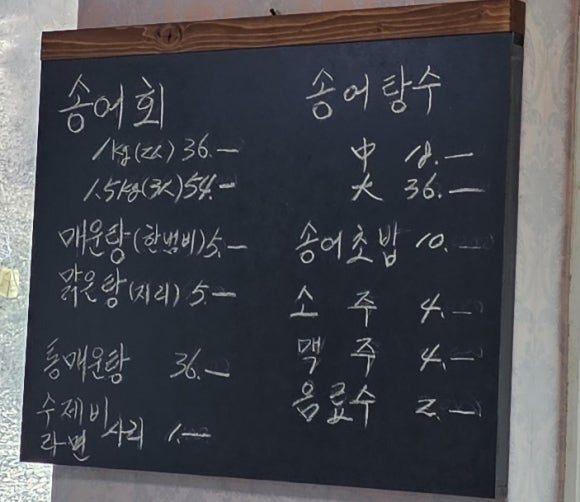 송어회
1kg(2人) 36.—
1.5kg(3人) 54.—
매운탕(한냄비) 5.—
맑은탕(지리) 5.—
통매운탕 36.—
수제비
라면 사리 1.—
송어탕수
中 18.—
大 36.—
송어초밥 10.—
소 주 4.—
맥 주 4.—
음료수 2.—